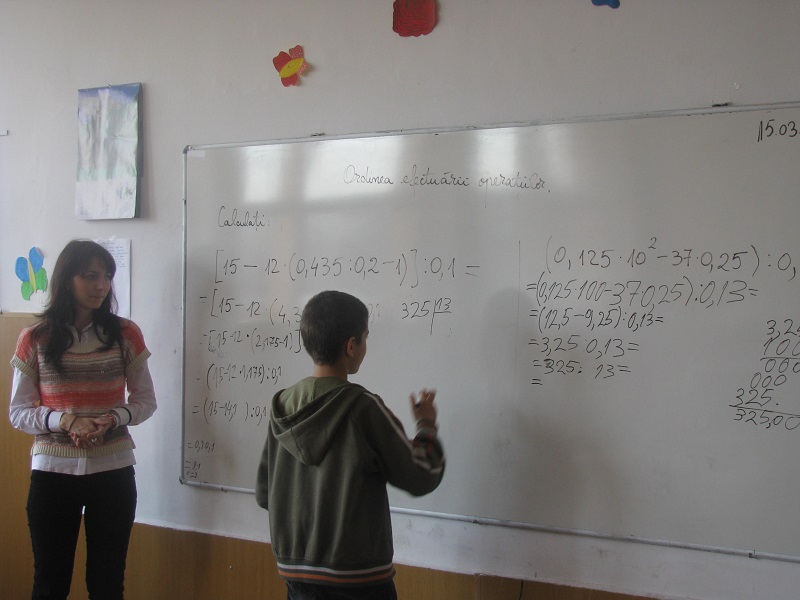 15.03.
Ordinea efectuării operațiilor.
Calculați:
[15-12·(0,435:0,2-1)]:0,1=
=[15-12·(4,3
=[15-12·(2,175-1)]
=(15-12·1,175):0,1
=(15-14,1):0,1
325 13
(0,125·10²-37·0,25):0,
=(0,125·100-37·0,25):0,13=
=(12,5-9,25):0,13=
=3,25 0,13=
=325: 13=
=
3,25
100
000
000
325.
325,00